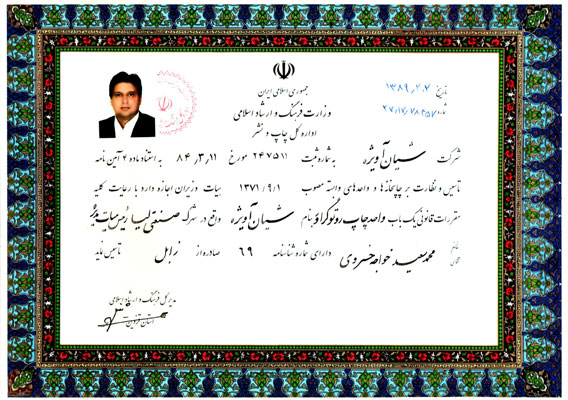 جمهوری اسلامی ایران
وزارت فرهنگ و ارشاد اسلامی
اداره کل چاپ و نشر
تاریخ ۱۳۸۹,۲,۷
شماره ۲۷/۱۷/۷۸۴۵۷
شرکت شیان آویژه به شماره ثبت ۲۴۷۵۱۱ مورخ ۸۴,۳,۱۱ به استناد ماده ۴ آئین نامه
تاسیس و نظارت بر چاپخانه ها و واحدهای وابسته مصوب ۱۳۷۱/۹/۱ هیات وزیران اجازه دارد با رعایت کلیه
مقررات قانونی یک باب واحد چاپ روتوگراور بنام شیان آویژه واقع در شهرک صنعتی لیا
محمد سعید خواجه خسروی دارای شماره شناسنامه ۶۹ صادره از زابل تاسیس نماید
مدیر کل فرهنگ و ارشاد اسلامی
استان قزوین